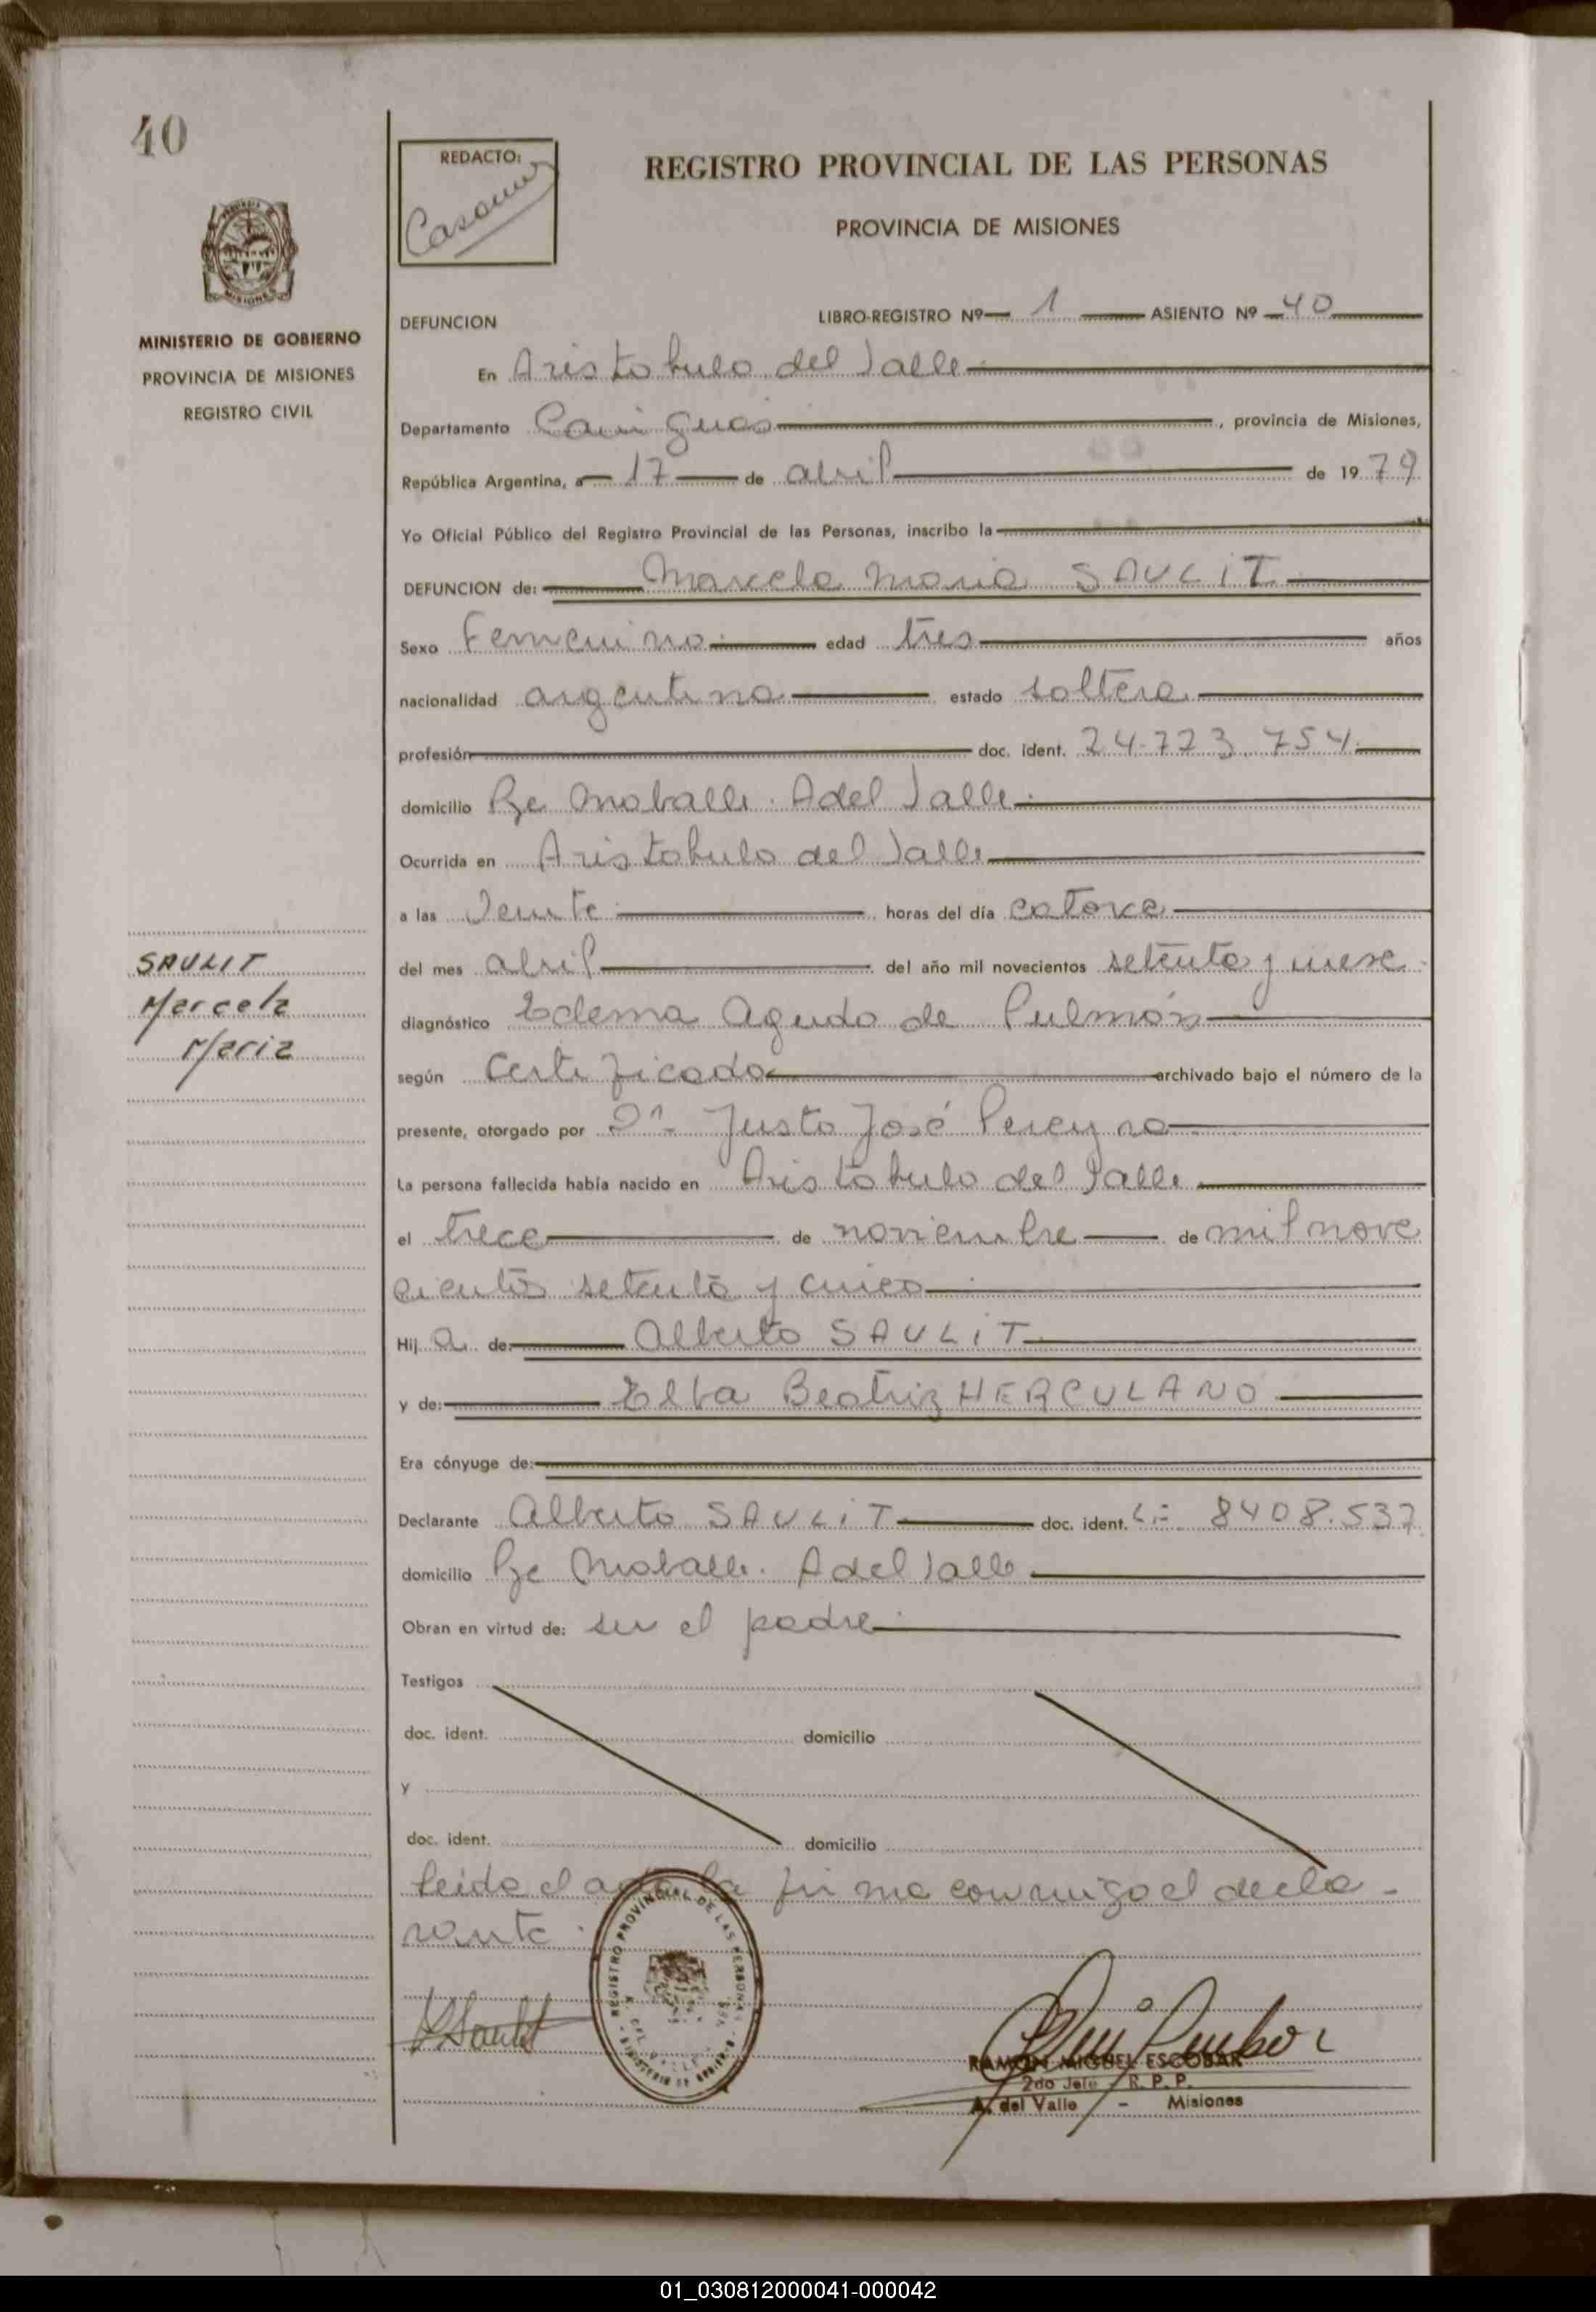 40
REDACTO:
REGISTRO PROVINCIAL DE LAS PERSONAS
PROVINCIA DE MISIONES
MINISTERIO DE GOBIERNO
PROVINCIA DE MISIONES
REGISTRO CIVIL
DEFUNCION LIBRO-REGISTRO Nº 1 ASIENTO Nº 40
En Aristobulo del Valle
Departamento Cainguas, provincia de Misiones,
República Argentina, a 17 de abril de 1979
Yo Oficial Público del Registro Provincial de las Personas, inscribo la
DEFUNCION de: Marcela Maria SAULIT
Sexo Femenino edad tres años
nacionalidad argentina estado soltera
profesión doc. ident. 24.723.754
domicilio A del Valle
Ocurrida en Aristobulo del Valle
a las Veinte horas del día catorce
SAULIT
Marcela
Maria
del mes abril del año mil novecientos setenta y nueve
diagnóstico Edema Agudo de Pulmón
según Certificado archivado bajo el número de la
presente, otorgado por Dr. Justo José Pereyra
La persona fallecida había nacido en Aristobulo del Valle
el trece de noviembre de mil nove
cientos setenta y cinco
Hij a de: Alberto SAULIT
y de: Elba Beatriz HERCULANO
Era cónyuge de:
Declarante Alberto SAULIT doc. ident. 8408.537
domicilio A del Valle
Obran en virtud de: ser el padre
Testigos
doc. ident. domicilio
y
doc. ident. domicilio
leida el acta la firma conmigo el decla-
rante.
REGISTRO PROVINCIAL DE LAS PERSONAS
RAMON MIGUEL ESCOBAR
2do Jefe - R. P. P.
A. del Valle - Misiones
01_030812000041-000042